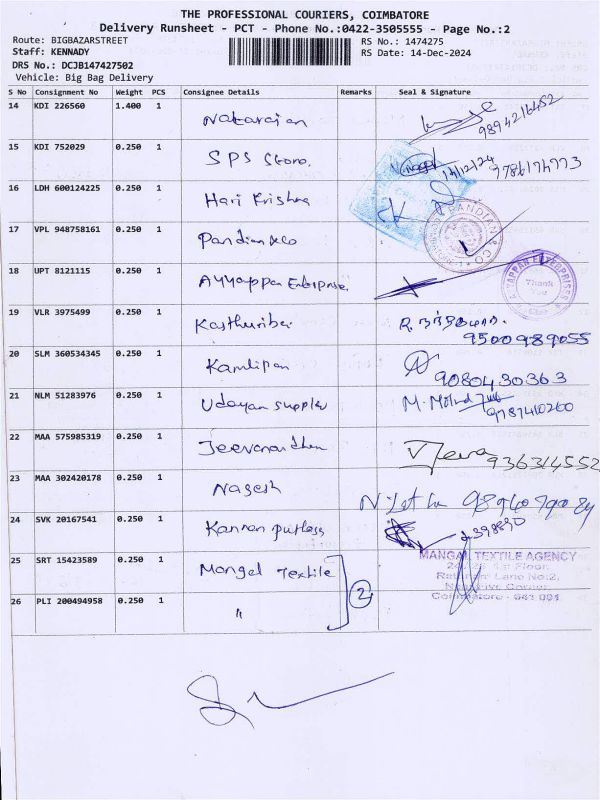 THE PROFESSIONAL COURIERS, COIMBATORE
Delivery Runsheet - PCT - Phone No.:0422-3505555 - Page No.:2
Route: BIGBAZARSTREET RS No.: 1474275
Staff: KENNADY RS Date: 14-Dec-2024
DRS No.: DCJB147427502
Vehicle: Big Bag Delivery
S No Consignment No Weight PCS Consignee Details Remarks Seal & Signature
14 KDI 226560 1.400 1 Natarajan 9894216452
15 KDI 752029 0.250 1 SPS Store. 14/12/24
16 LDH 600124225 0.250 1 Hari Krishna
17 VPL 948758161 0.250 1 Pandian &Co PANDIAN & CO
18 UPT 8121115 0.250 1 Ayyappa Enterprise. Thank You
19 VLR 3975499 0.250 1 Kasthuribai 9500989055
20 SLM 360534345 0.250 1 9080430363
21 NLM 51283976 0.250 1 Udayan supplier 9787410200
22 MAA 575985319 0.250 1 Jeevanandham Jeeva 936314552
23 MAA 302420178 0.250 1 Nagesh
24 SVK 20167541 0.250 1 Kannan
25 SRT 15423589 0.250 1 Mangal Textile 2 MANGAL TEXTILE AGENCY
1st Floor,
Lane No:2,
Corner
Coimbatore - 641 001.
26 PLI 200494958 0.250 1 "